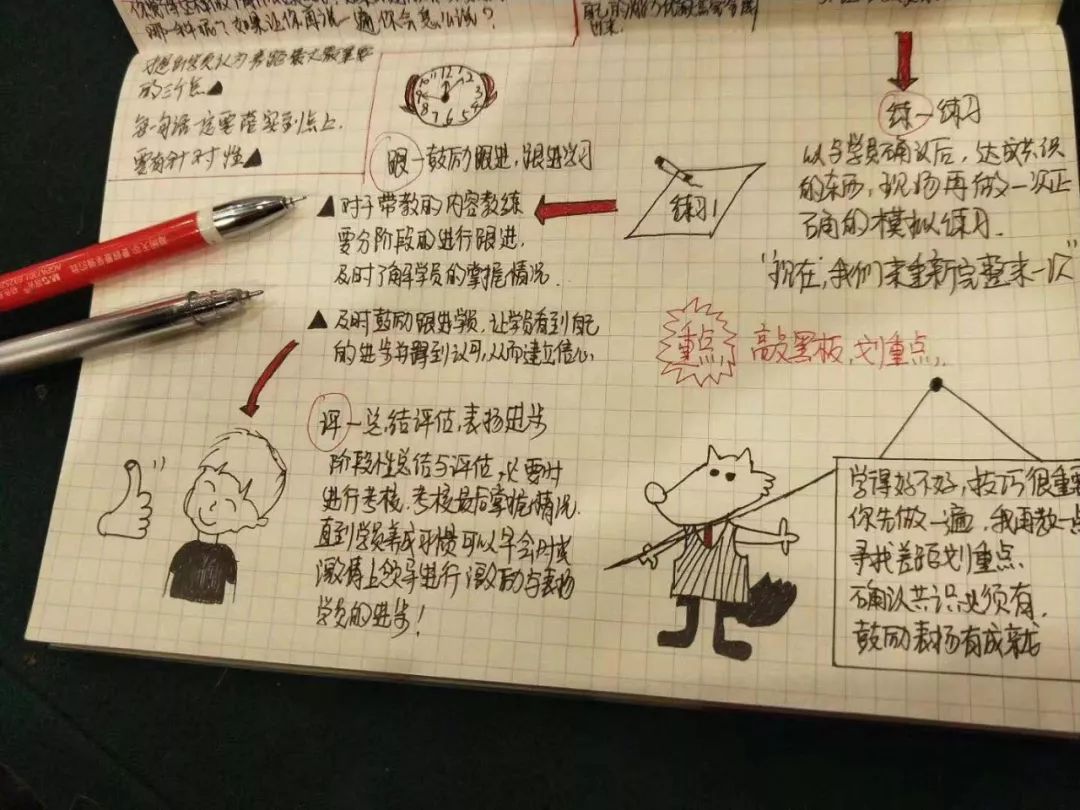 哪一种呢？如果让你再说一遍你会怎么说？
的三个点▲
每一句话一定要落实到点上.
要有针对性▲
12 1 2 3 4 5 6 7 8 9 10 11
跟一鼓励跟进，跟进学习
▲对于带教的内容教练
要分阶段的进行跟进.
及时了解学员的掌握情况.
▲及时鼓励跟进学员，让学员看到自己
的进步并得到认可，从而建立信心.
练习！
练一练习
以与学员确认后，达成共识
的东西，现场再做一次正
确的模拟练习.
"现在，我们来重新完整来一次"
重点 敲黑板，划重点.
评一总结评估，表扬进步
阶段性总结与评估，必要时
进行考核.考核最后掌握情况.
直到学员养成习惯可以早会时或
激情上领导进行激励与表扬
学员的进步！
学得好不好，技巧很重要
你先做一遍，我再教一点
寻找差距划重点
确认共识必须有.
鼓励表扬有成就
M&G